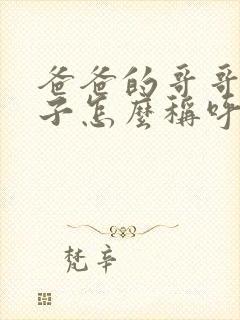 爸爸的哥哥
子怎麼稱呼
梵辛